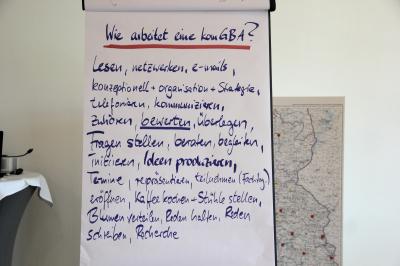 Wie arbeitet eine komGBA?
Lesen, netzwerken, e-mails,
konzeptionell + organisation + Strategie,
telefonieren, kommunizieren,
Zuhören, bewerten, überlegen,
Fragen stellen, beraten, begleiten,
Initiieren, Ideen produzieren,
Termine, repräsentieren, teilnehmen (Fachtag)
eröffnen, Kaffee kochen + Stühle stellen,
Blumen verteilen, Reden halten, Reden
schreiben, Recherche